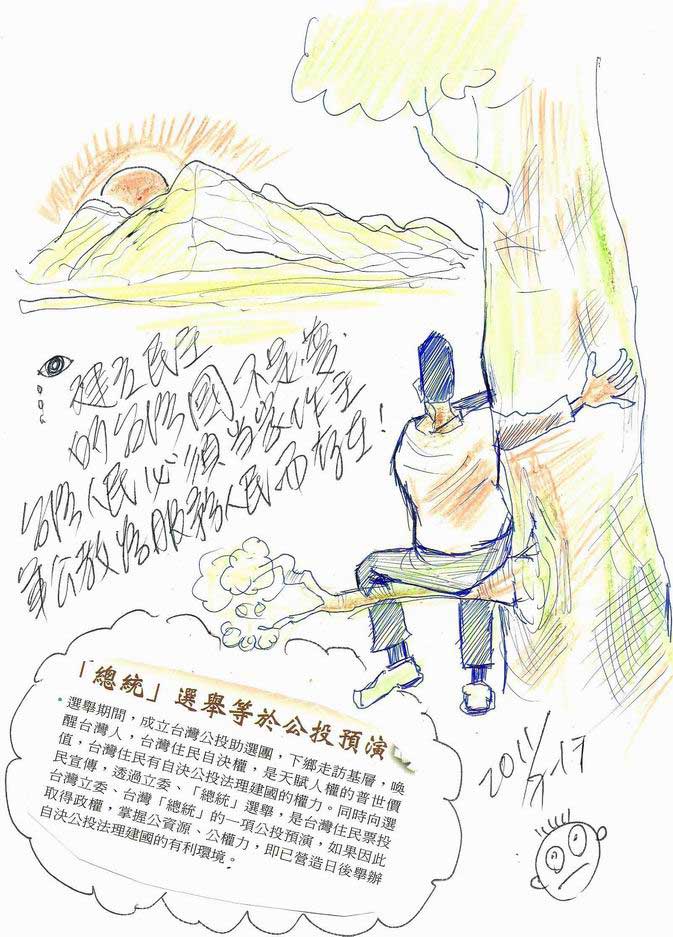 建立民主
的台灣國不是夢.
台灣人民必須當家作主
軍公教為服務人民而存在!
「總統」選舉等於公投預演
選舉期間，成立台灣公投助選團，下鄉走訪基層，喚
醒台灣人，台灣住民自決權，是天賦人權的普世價
值，台灣住民有自決公投法理建國的權力。同時向選
民宣傳，透過立委、「總統」選舉，是台灣住民票投
台灣立委、台灣「總統」的一項公投預演，如果因此
取得政權，掌握公資源、公權力，即已營造日後舉辦
自決公投法理建國的有利環境。
2011/